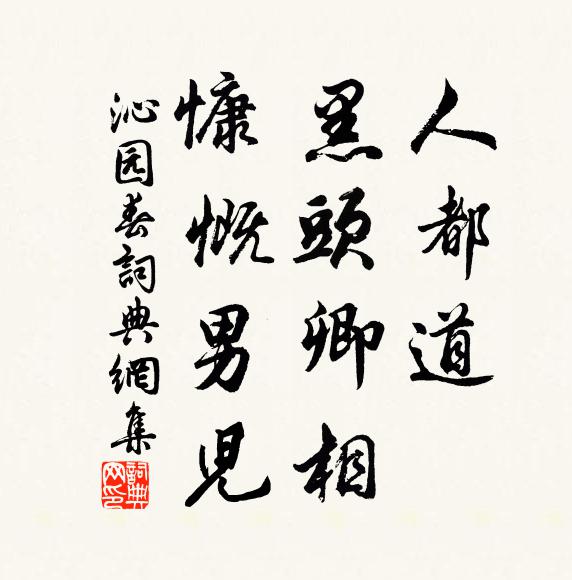 人都道
黑頭卿相
慷慨男兒
沁园春詞典網集
詞典网印